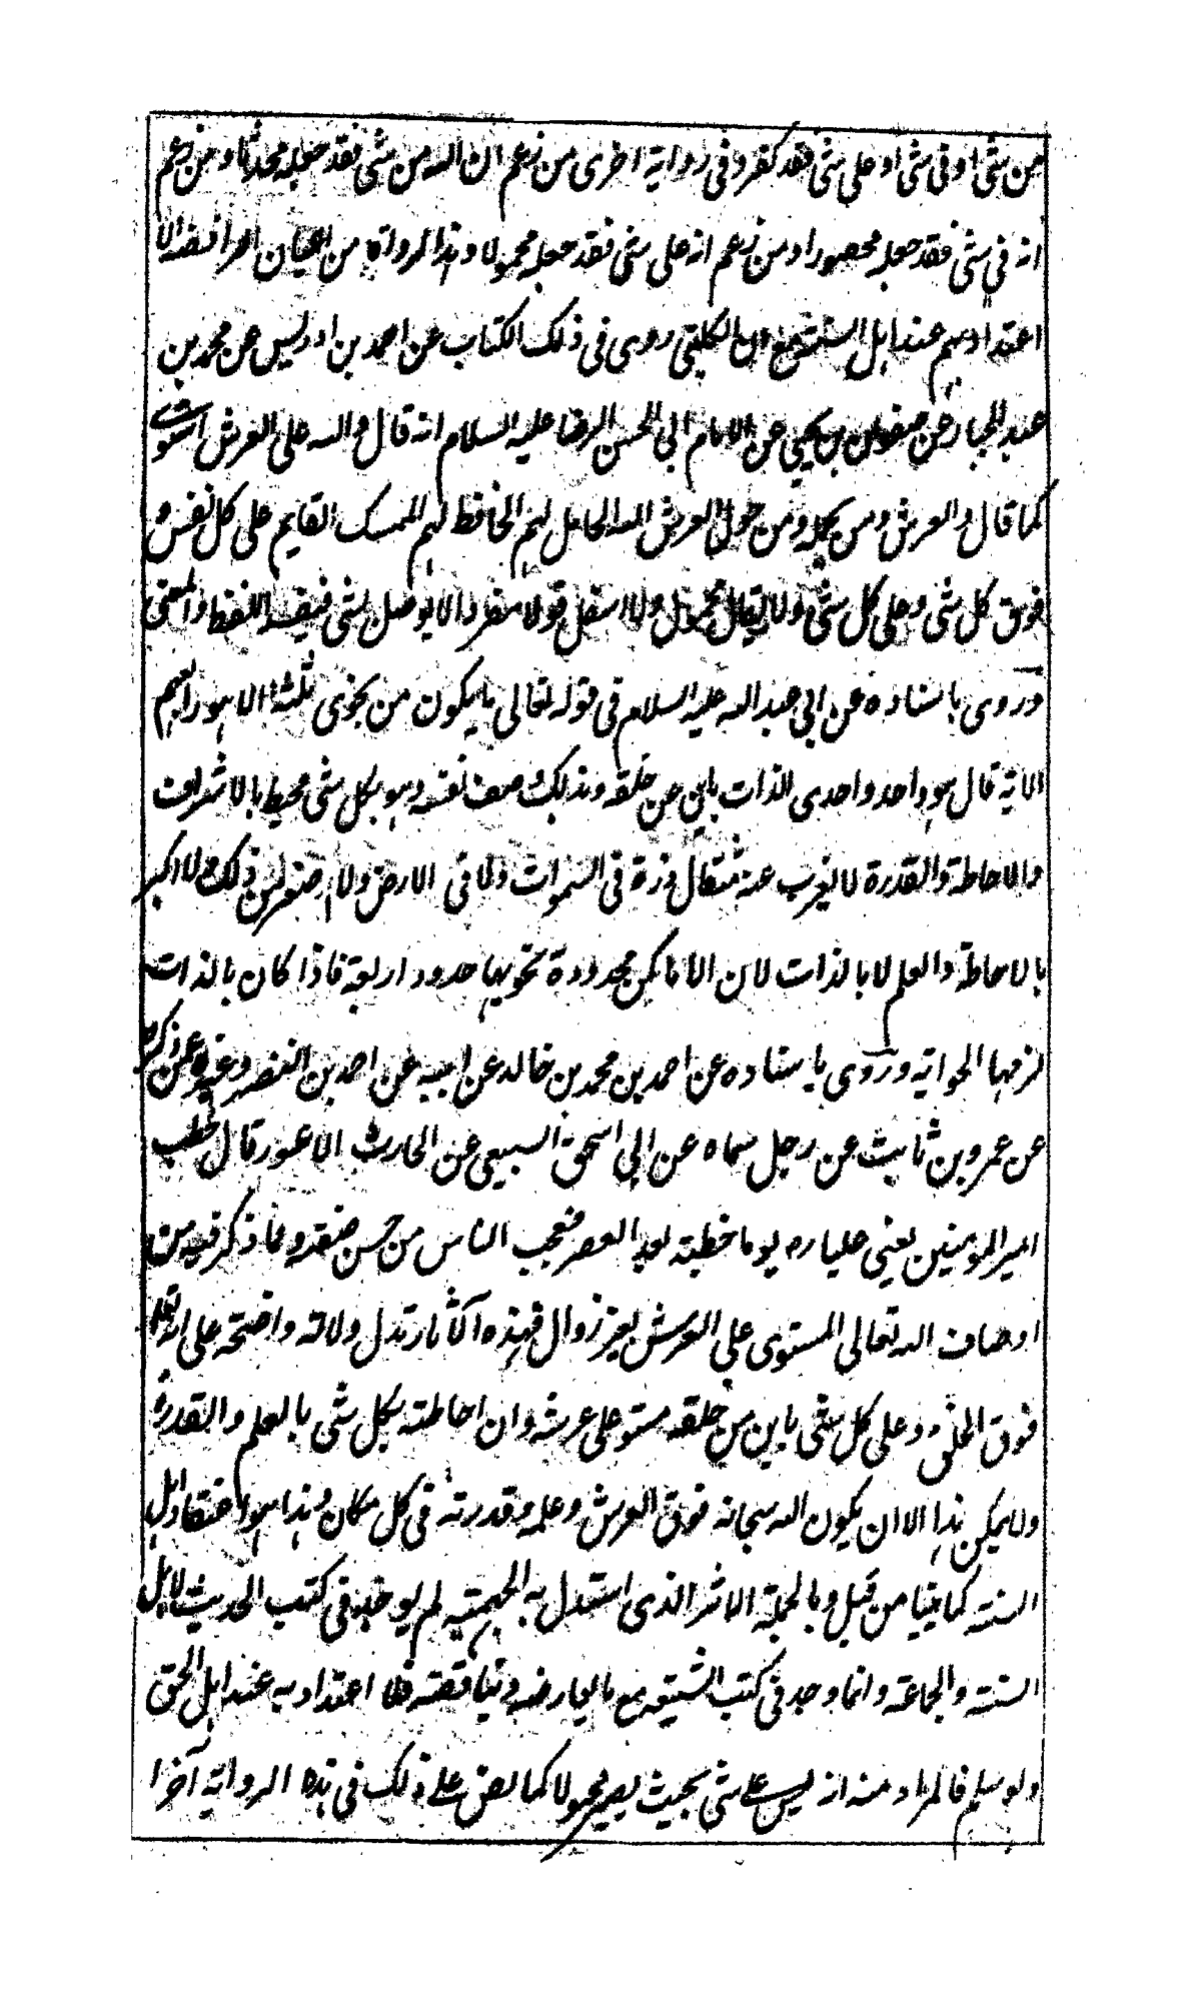 من شئ او فى شئ او على شئ فقد كفر و فى رواية اخرى من زعم ان الله من شئ فقد جعله محدثا و من زعم
انه فى شئ فقد جعله محصورا و من زعم انه على شئ فقد جعله محمولا و هذا الرواة من اعيان الرافضة لا
اعتداد بهم عند اهل السنة مع ان الكلينى روى فى ذلك الكتاب عن احمد بن ادريس عن محمد بن
عبد الجبار عن صفوان بن يحيى عن الامام ابى الحسن الرضا عليه السلام انه قال و الله على العرش استوى
كما قال و العرش و من يحمله و من حول العرش الله الحامل لهم الحافظ لهم الممسك القايم على كل نفس و
فوق كل شئ و على كل شئ و لا يقال محمول و لا اسفل قولا مفردا لا يوصل بشئ فيفسد اللفظ و المعنى
و روى باسناده عن ابى عبد الله عليه السلام فى قوله تعالى ما يكون من نجوى ثلثة الا هو رابعهم
الاية قال هو واحد واحدى الذات باين من خلقه و بذلك وصف نفسه و هو بكل شئ محيط بالاشراف
و الاحاطة و القدرة لا يعزب عنه مثقال ذرة فى السموات و لا فى الارض و لا اصغر من ذلك و لا اكبر
بالاحاطة و العلم لا بالذات لان الاماكن محدودة تحويها حدود اربعة فاذا كان بالذات
لزمها الحواية و روى باسناده عن احمد بن محمد بن خالد عن ابيه عن احمد بن النضر و غيره عمن ذكره
عن عمرو بن ثابت عن رجل سماه عن ابى اسحق السبيعى عن الحارث الاعور قال خطب
امير المومنين يعنى عليا ره يوما خطبة بعد العصر فعجب الناس من حسن صفته و مما ذكر فيه من
اوصاف الله تعالى المستوى على العرش بغير زوال فهذه الآثار تدل دلالة واضحة على انه تعالى
فوق الخلق و على كل شئ باين من خلقه مستو على عرشه و ان احاطته بكل شئ بالعلم و القدرة
و لا يمكن هذا الا ان يكون الله سبحانه فوق العرش و علمه و قدرته فى كل مكان و هذا هو اعتقاد اهل
السنة كما بينا من قبل و بالجملة الاثر الذى استدل به الجهمية لم يوجد فى كتب الحديث لاهل
السنة و الجماعة و انما وجد فى كتب الشيعة مع ما يعارضه و يناقضه فلا اعتداد به عند اهل الحق
و لو سلم فالمراد منه انه ليس على شئ بحيث يصير محمولا كما نص على ذلك فى هذه الرواية آخرا